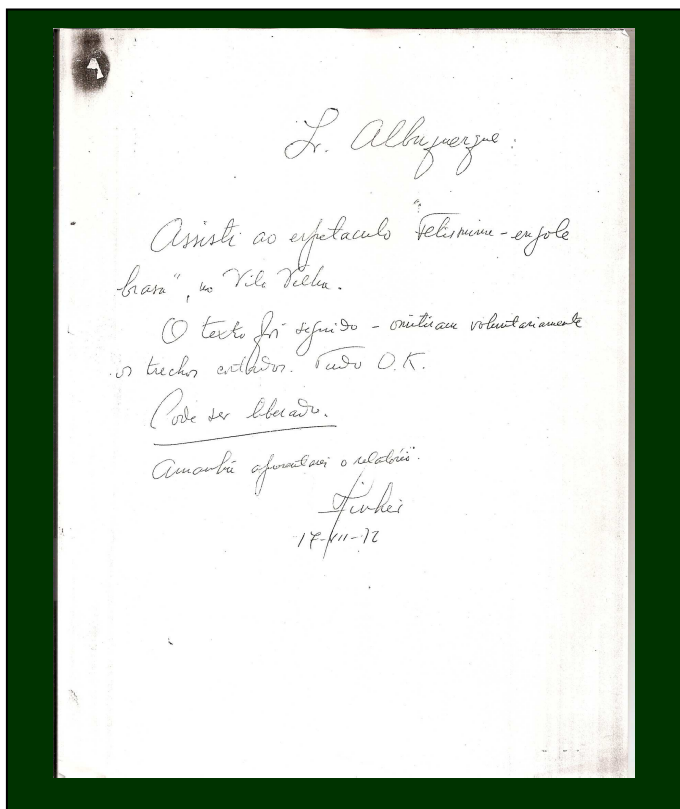 Sr. Albuquerque:
Assisti ao espetaculo "Felismina-engole
brasa", no Vila Velha.
O texto foi seguido - omitiram voluntariamente
os trechos cortados. Tudo O.K.
Pode ser liberado.
Amanhã apresentarei o relatório.